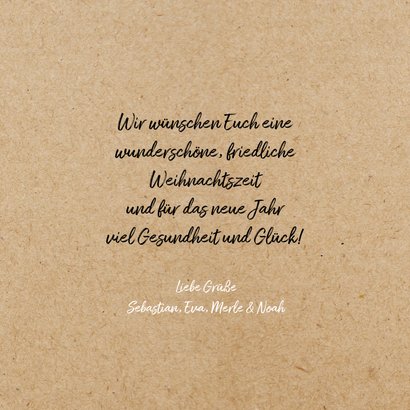 Wir wünschen Euch eine
wunderschöne, friedliche
Weihnachtszeit
und für das neue Jahr
viel Gesundheit und Glück!
Liebe Grüße
Sebastian, Eva, Merle & Noah